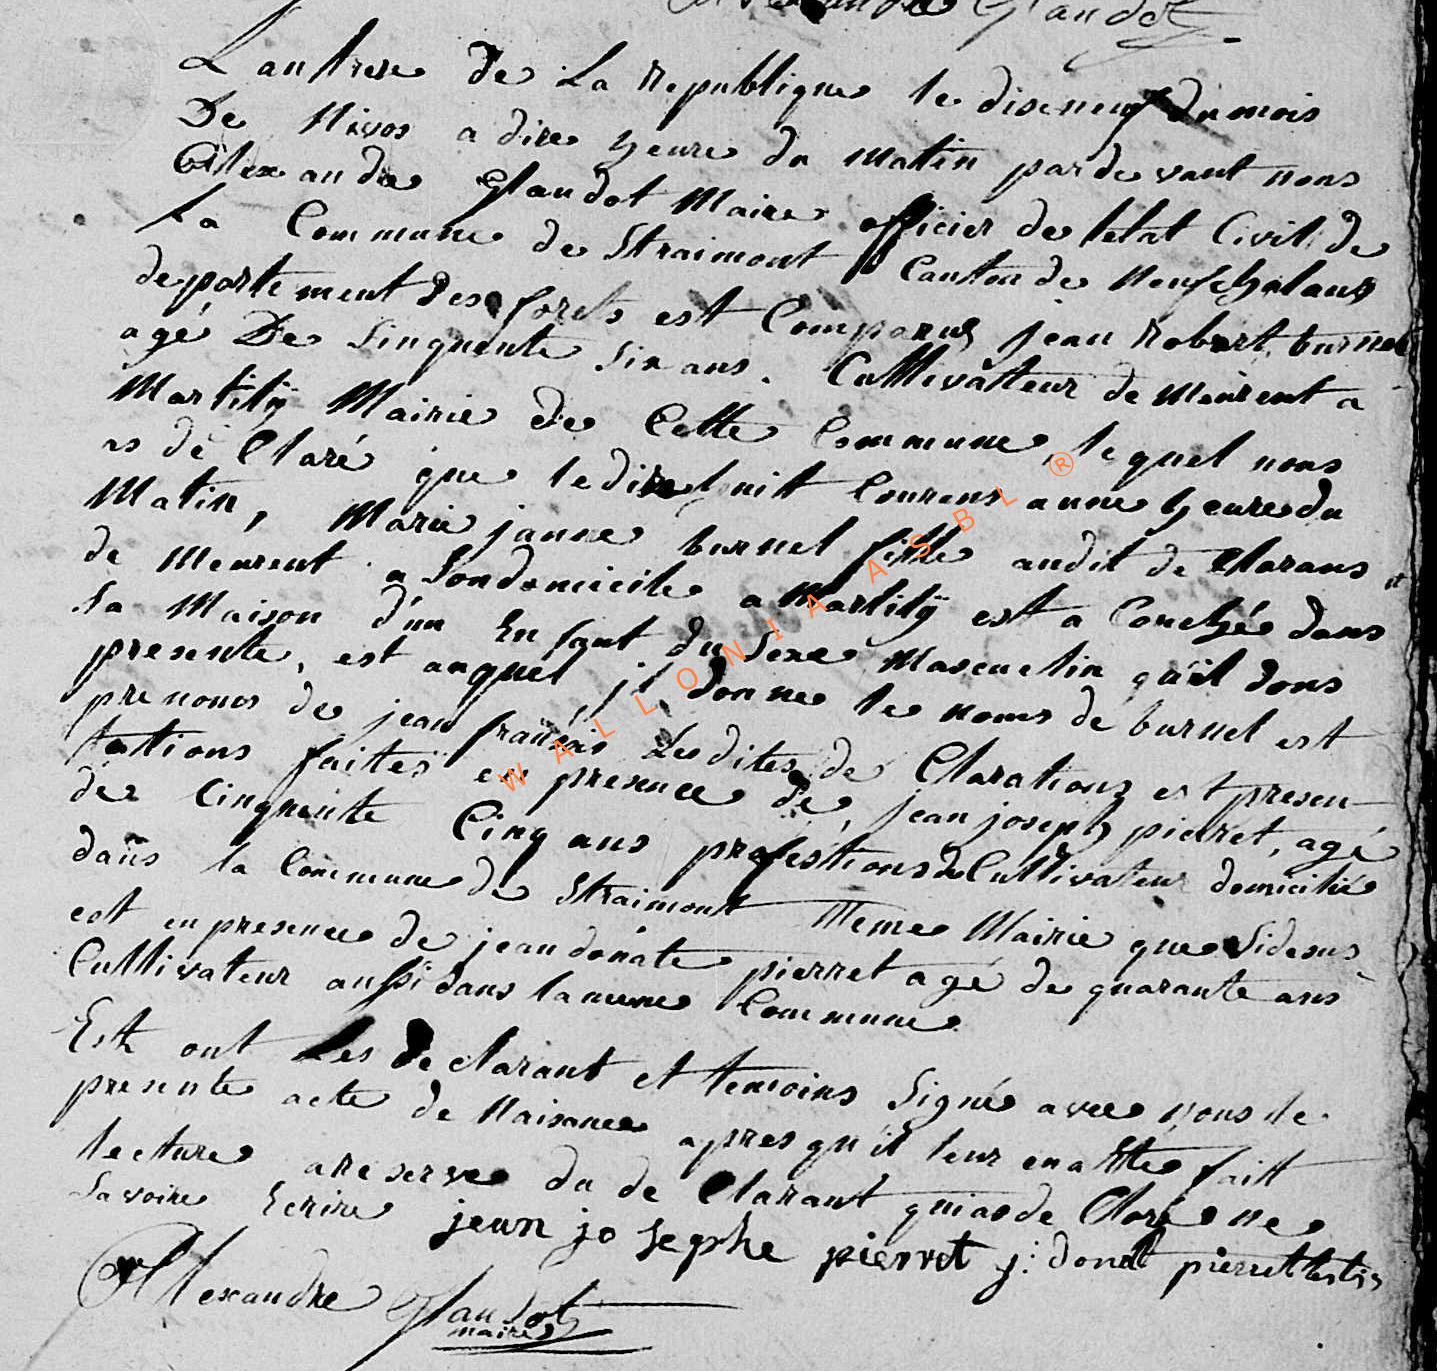 Alexandre Glaudot
L an treze de La Republique le diseneuf du mois
De Nivos a dixe heure du matin par de vant nous
Alexandre Glaudot Maire officier de letat Civil de
La Commune de Straimont Canton de Neufchataux
deportement des forets est Comparus jean Robert burnel
agé De Sinquente Six ans. Cultivateur de meurent a
Martilÿ Mairie de Cette Commune, le quel nous
as de Claré que le dix huit Courens a une heure du
Matin, Marie janne burnel fille audit de Clarans et
de meurent a Son domicile a Martilÿ est a Couché dans
Sa Maison d'un Enfant du Sexe Masculin qu'il dons
presente, est auquel il donne le noms de burnel est
prenoms de jean français Les dites de Clarations et presen-
tations faites en presence de, jean joseph pierret, agé
de Cinquente Cinq ans profestions de Cultivateur domicilié
dans la Commune de Straimont Meme Mairie que Sidesus
est en presence de jean donate pierret agé de quarante ans
Cultivateur aussi dans la meme Commune
Est ont Les de Clarant et temoins Signé avec nous le
presente acte de Naisance apres qu'il leur en a Ette fait
lecture a reserve du de Clarant qui as de Claré ne
Savoire Ecrire jean josephe pierret j: donat pierret testis
Alexandre Glaudot
maire
WALLONIA ASBL ®